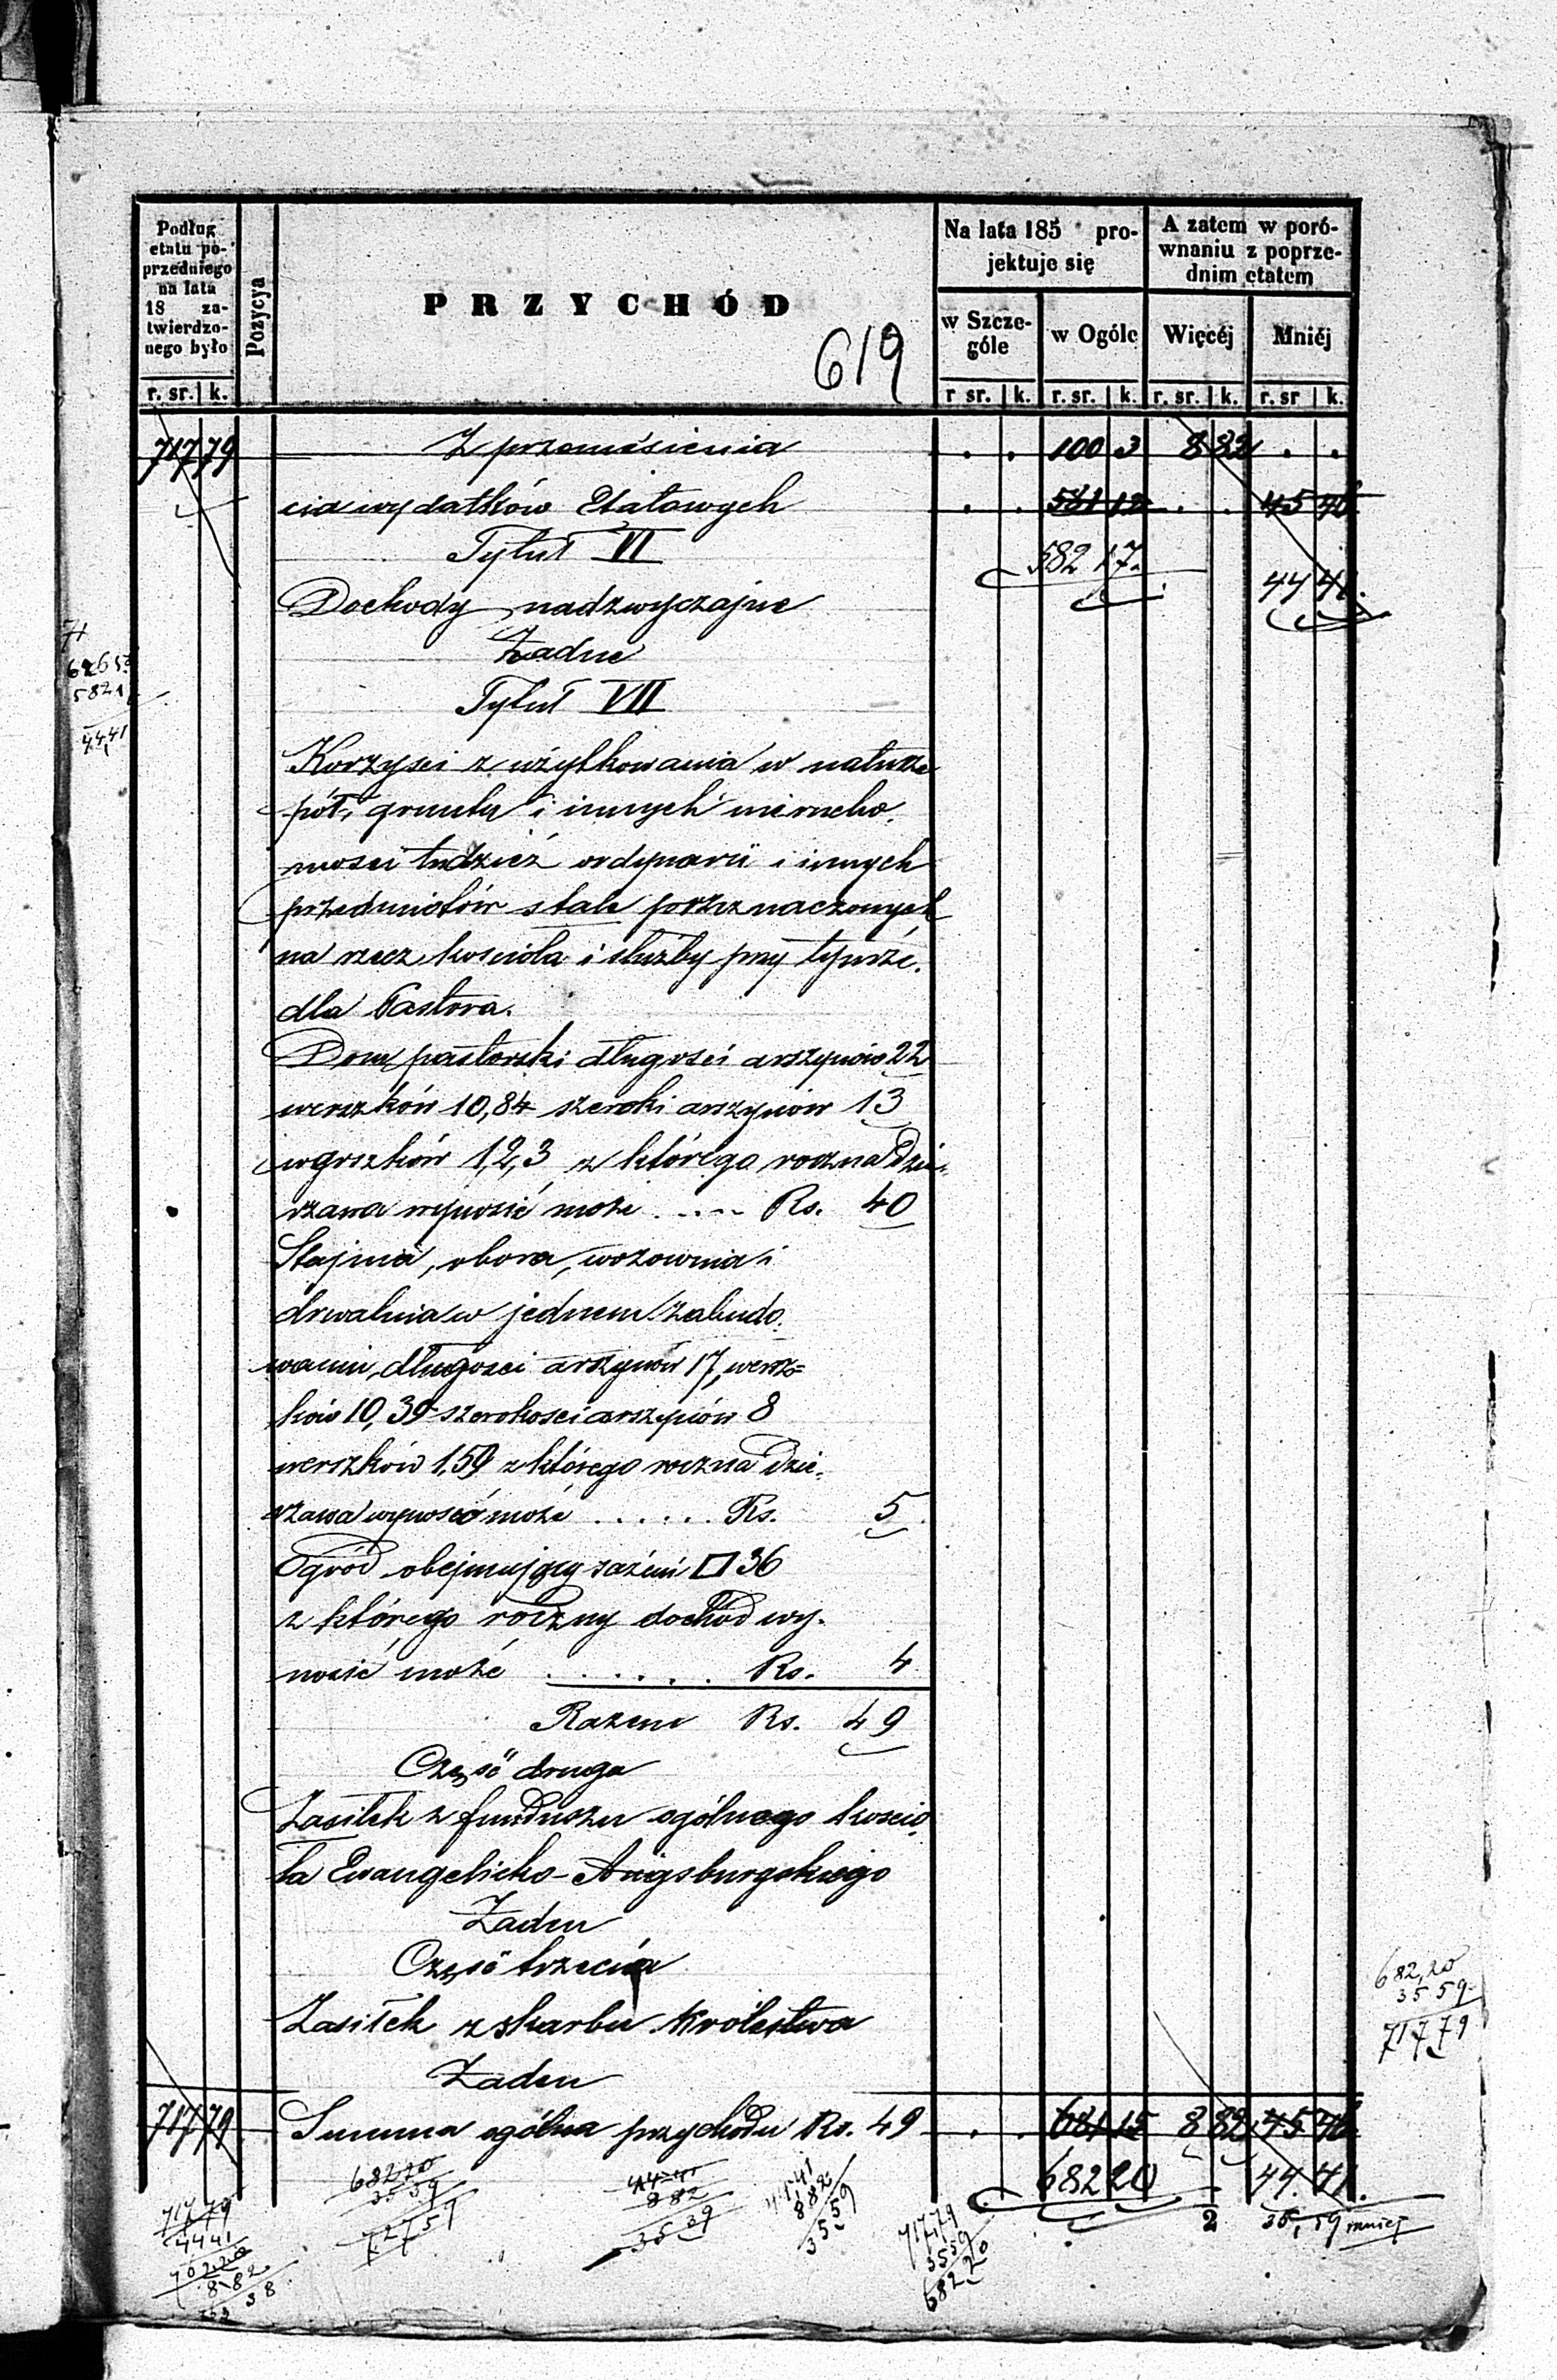 Podług
etatu po-
przedniego
na lata
18 za-
twierdzo-
nego było
Pozycya
PRZYCHÓD
619
Na lata 185 pro-
jektuje się
A zatem w poró-
wnaniu z poprze-
dnim etatem
w Szcze-
góle
w Ogóle
Więcéj
Mniéj
r. sr. k.
r sr. k. r. sr. k. r. sr. k. r. sr k.
717 79 Z przeniesienia . . 100 3 8 82 . .
cia wydatków Etatowych . . 581 12 . . 45 46
Tytuł VI
582 17.
44 41.
Dochody nadzwyczajne
Żadne
Tytuł VII
62653
5821
4441
Korzyści z użytkowania w naturze
pól, gruntu i innych nierucho-
mości tudzież ordynarii i innych
przedmiotów stale przeznaczonych
na rzecz kościoła i służby przy tymże.
dla Pastora.
Dom pastorski długości arszynów 22
werszków 10,84 szeroki arszynów 13
werszków 1,2,3 z którego roczna dzie-
rzawa wynosić może . . . . Rs. 40
Stajnia, obora, wozownia i
drwalnia w jednem zabudo-
waniu, długości arszynów 17, wersz=
ków 10,39 szerokości arszynów 8
werszków 1,59 z którego roczna dzie-
rzawa wynosić może . . . . . . Rs. 5
Ogród obejmujący sążeni □ 36
z którego roczny dochód wy-
nosić może . . . . . . Rs. 4
Razem Rs. 49
Część druga
Zasiłek z funduszu ogólnego kościo-
ła Ewangelicko-Augsburgskiego
Żaden
Część trzecia
Zasiłek z skarbu Królestwa
Żaden
682,20
35 59
717 79
717 79 Summa ogólna przychodu Rs. 49 . . 681 15 8 82 45 46
682 20 44. 41.
2
35,59 mniej
717 79
4441
8 82
68220
3559
72759
4441
882
3539
4441
882
3559
71779
3559
68220